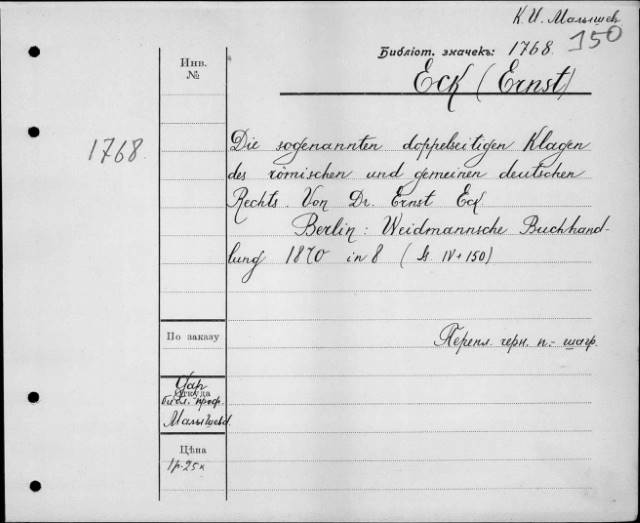 К. И. Малышев
150
Библіот. значекъ: 1768.
Eck (Ernst)
Инв.
№
1768
Die sogenannten doppelseitigen Klagen
des römischen und gemeinen deutschen
Rechts. Von Dr. Ernst Eck
Berlin: Weidmannsche Buchhand-
lung 1870 in 8 ( S. IV + 150)
По заказу
Перепл. черн. п.- шагр.
Откуда
Дар
библ. проф.
Малышева.
Цѣна
1р-25к